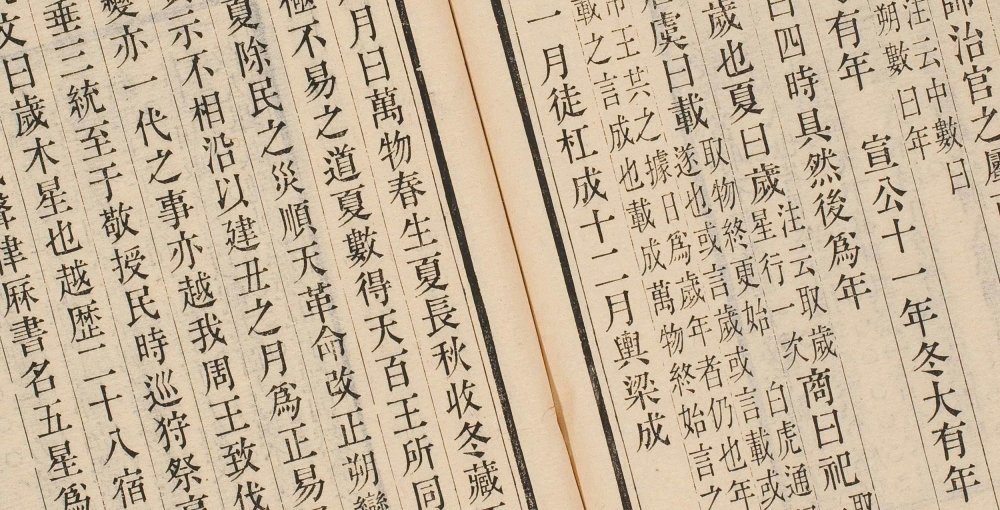 師治官之屬
注云中數曰
朔數曰年
有年 宣公十一年冬大有年
曰四時具然後爲年
歲也夏曰歲
注云取歲
星行一次
商曰祀
取
虞曰載
取物終更始 白虎通
遂也或言歲或言載或
帝王共之據日爲歲年者仍也年
載之言成也載成萬物終始言之
一月徒杠成十二月輿梁成
月曰萬物春生夏長秋收冬藏
極不易之道夏數得天百王所同
夏除民之災順天革命改正朔變
示不相沿以建丑之月爲正易
變亦一代之事亦越我周王致伐
垂三統至于敬授民時巡狩祭享
文曰歲木星也越歴二十八宿
律厤書名五星爲